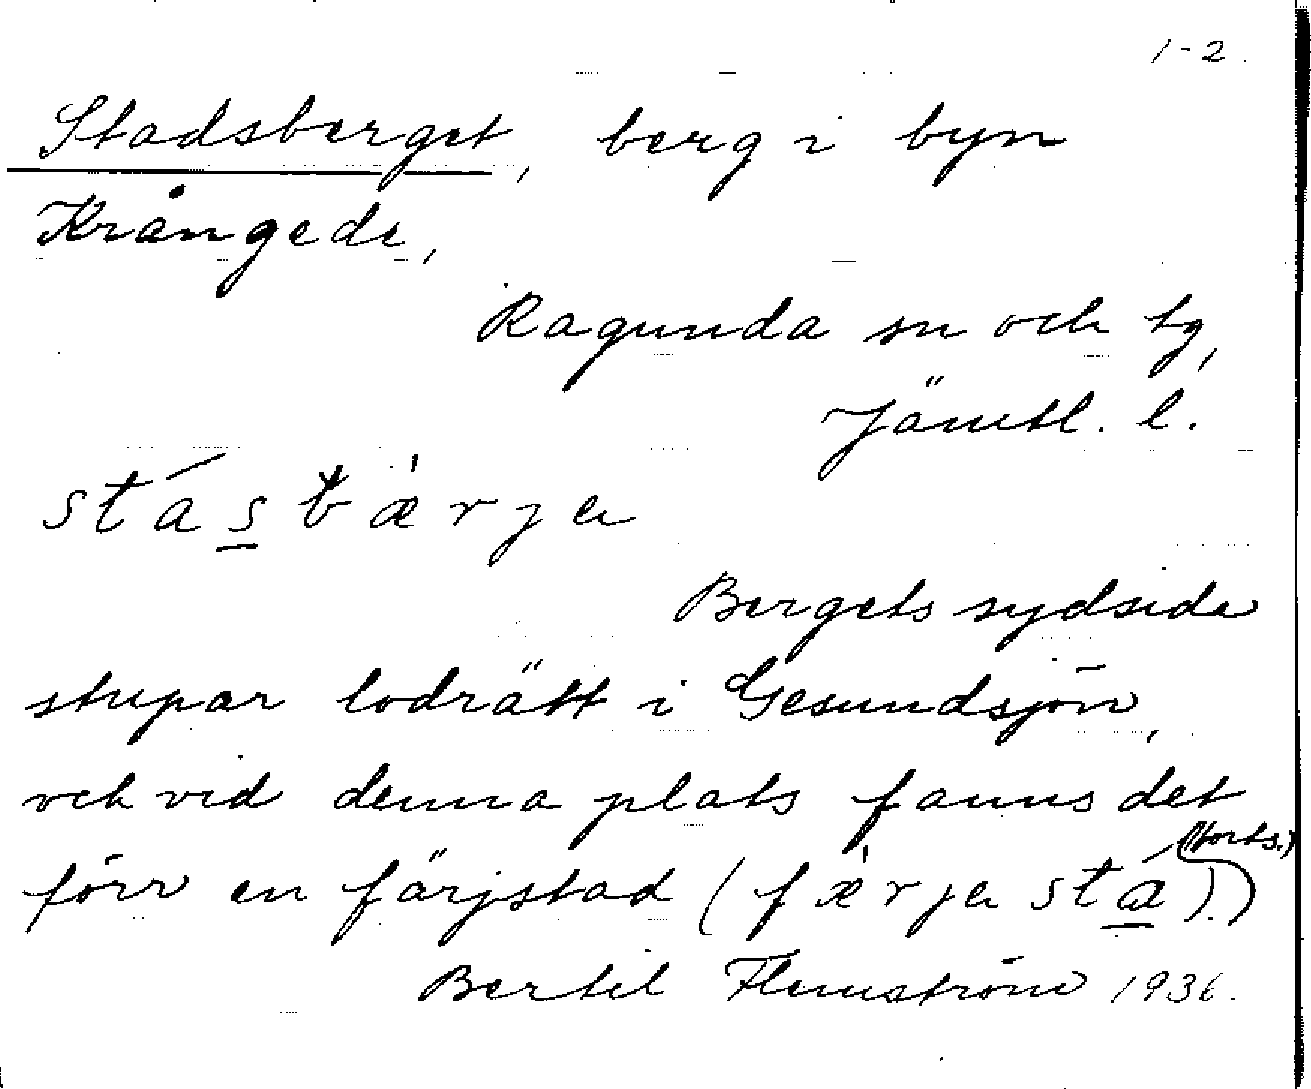 1-2.
Stadsberget, berg i byn
Krångede,
Ragunda sn och tg,
Jämtl. l.
Bergets sydside
stupar lodrätt i Gesundsjön,
och vid denna plats fanns det
(forts.)
förr en färjstad (færja stá).)
Bertil Flemström 1936.